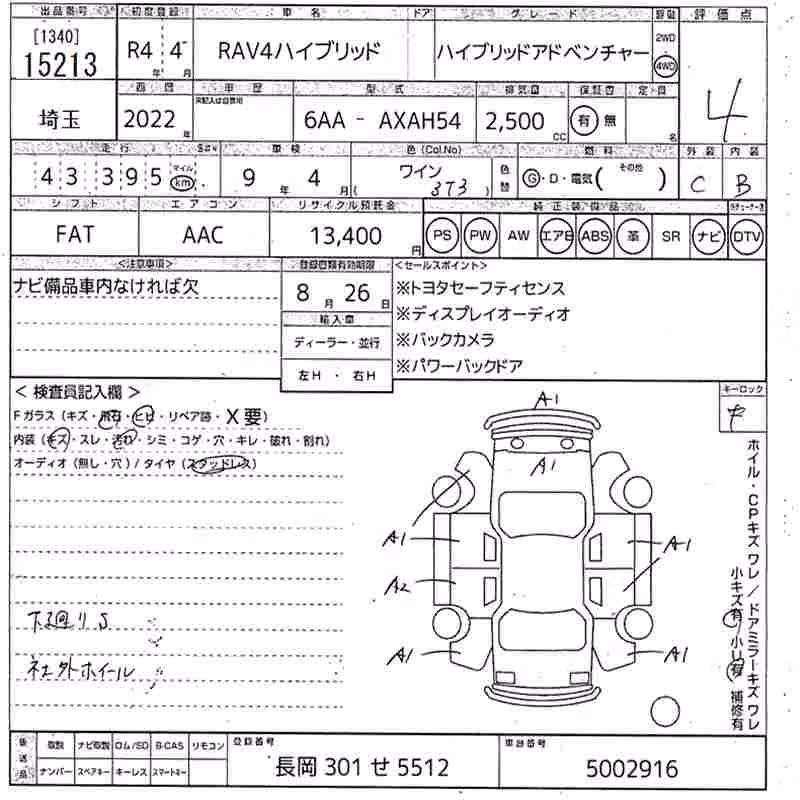 出品番号 初度登録 車名 ドア グレード 駆動 評価点
[1340] 15213 R4年 4月 RAV4ハイブリッド ハイブリッドアドベンチャー 2WD 4WD 4
車歴 型式 排気量 保証書 定員
埼玉 2022年 6AA - AXAH54 2,500CC 有 無 名
走行 車検 色(Col.No) 燃料 外装 内装
43,395 マイル km 9年 4月 ワイン 3T3 色替 G・D・電気( その他 ) C B
シフト エアコン リサイクル預託金 純正装備品
FAT AAC 13,400円 PS PW AW エアB ABS 革 SR ナビ DTV
<注意事項> 登録書類有効期限 <セールスポイント>
ナビ備品車内なければ欠 8月 26日 ※トヨタセーフティセンス
輸入車 ※ディスプレイオーディオ
ディーラー・並行 ※バックカメラ
左H・右H ※パワーバックドア
<検査員記入欄> キーロック
Fガラス(キズ・飛石・ヒビ・リペア跡・X要)
内装(キズ・スレ・汚れ・シミ・コゲ・穴・キレ・破れ・割れ)
オーディオ(無し・穴)/タイヤ(スタッドレス)
A1
A1
A1 A1
A2
A1 A1
下廻りS
社外ホイール
ホイール・CPキズ ワレ/ドアミラーキズ ワレ
小キズ有 小U有 補修有
後送品 取説 ナビ取説 ロム/SD B-CAS リモコン 登録番号 車台番号
ナンバー スペアキー キーレス スマートキー 長岡 301 せ 5512 5002916